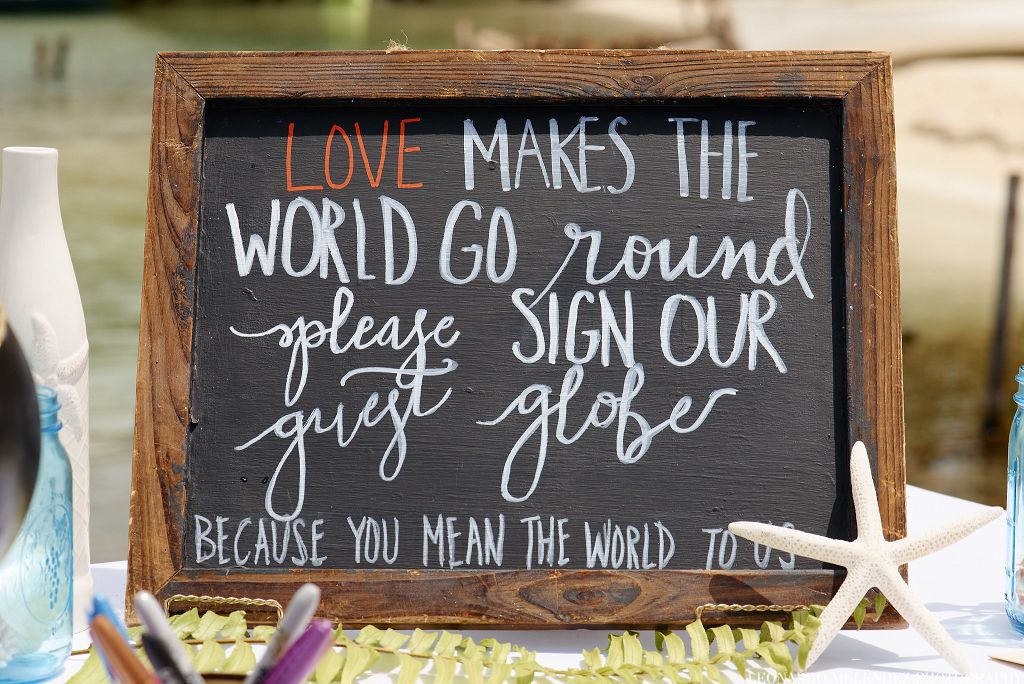 LOVE MAKES THE
WORLD GO round
please SIGN OUR
guest globe
BECAUSE YOU MEAN THE WORLD TO US
LEONARDO MELENDEZ PHOTOGRAPHY